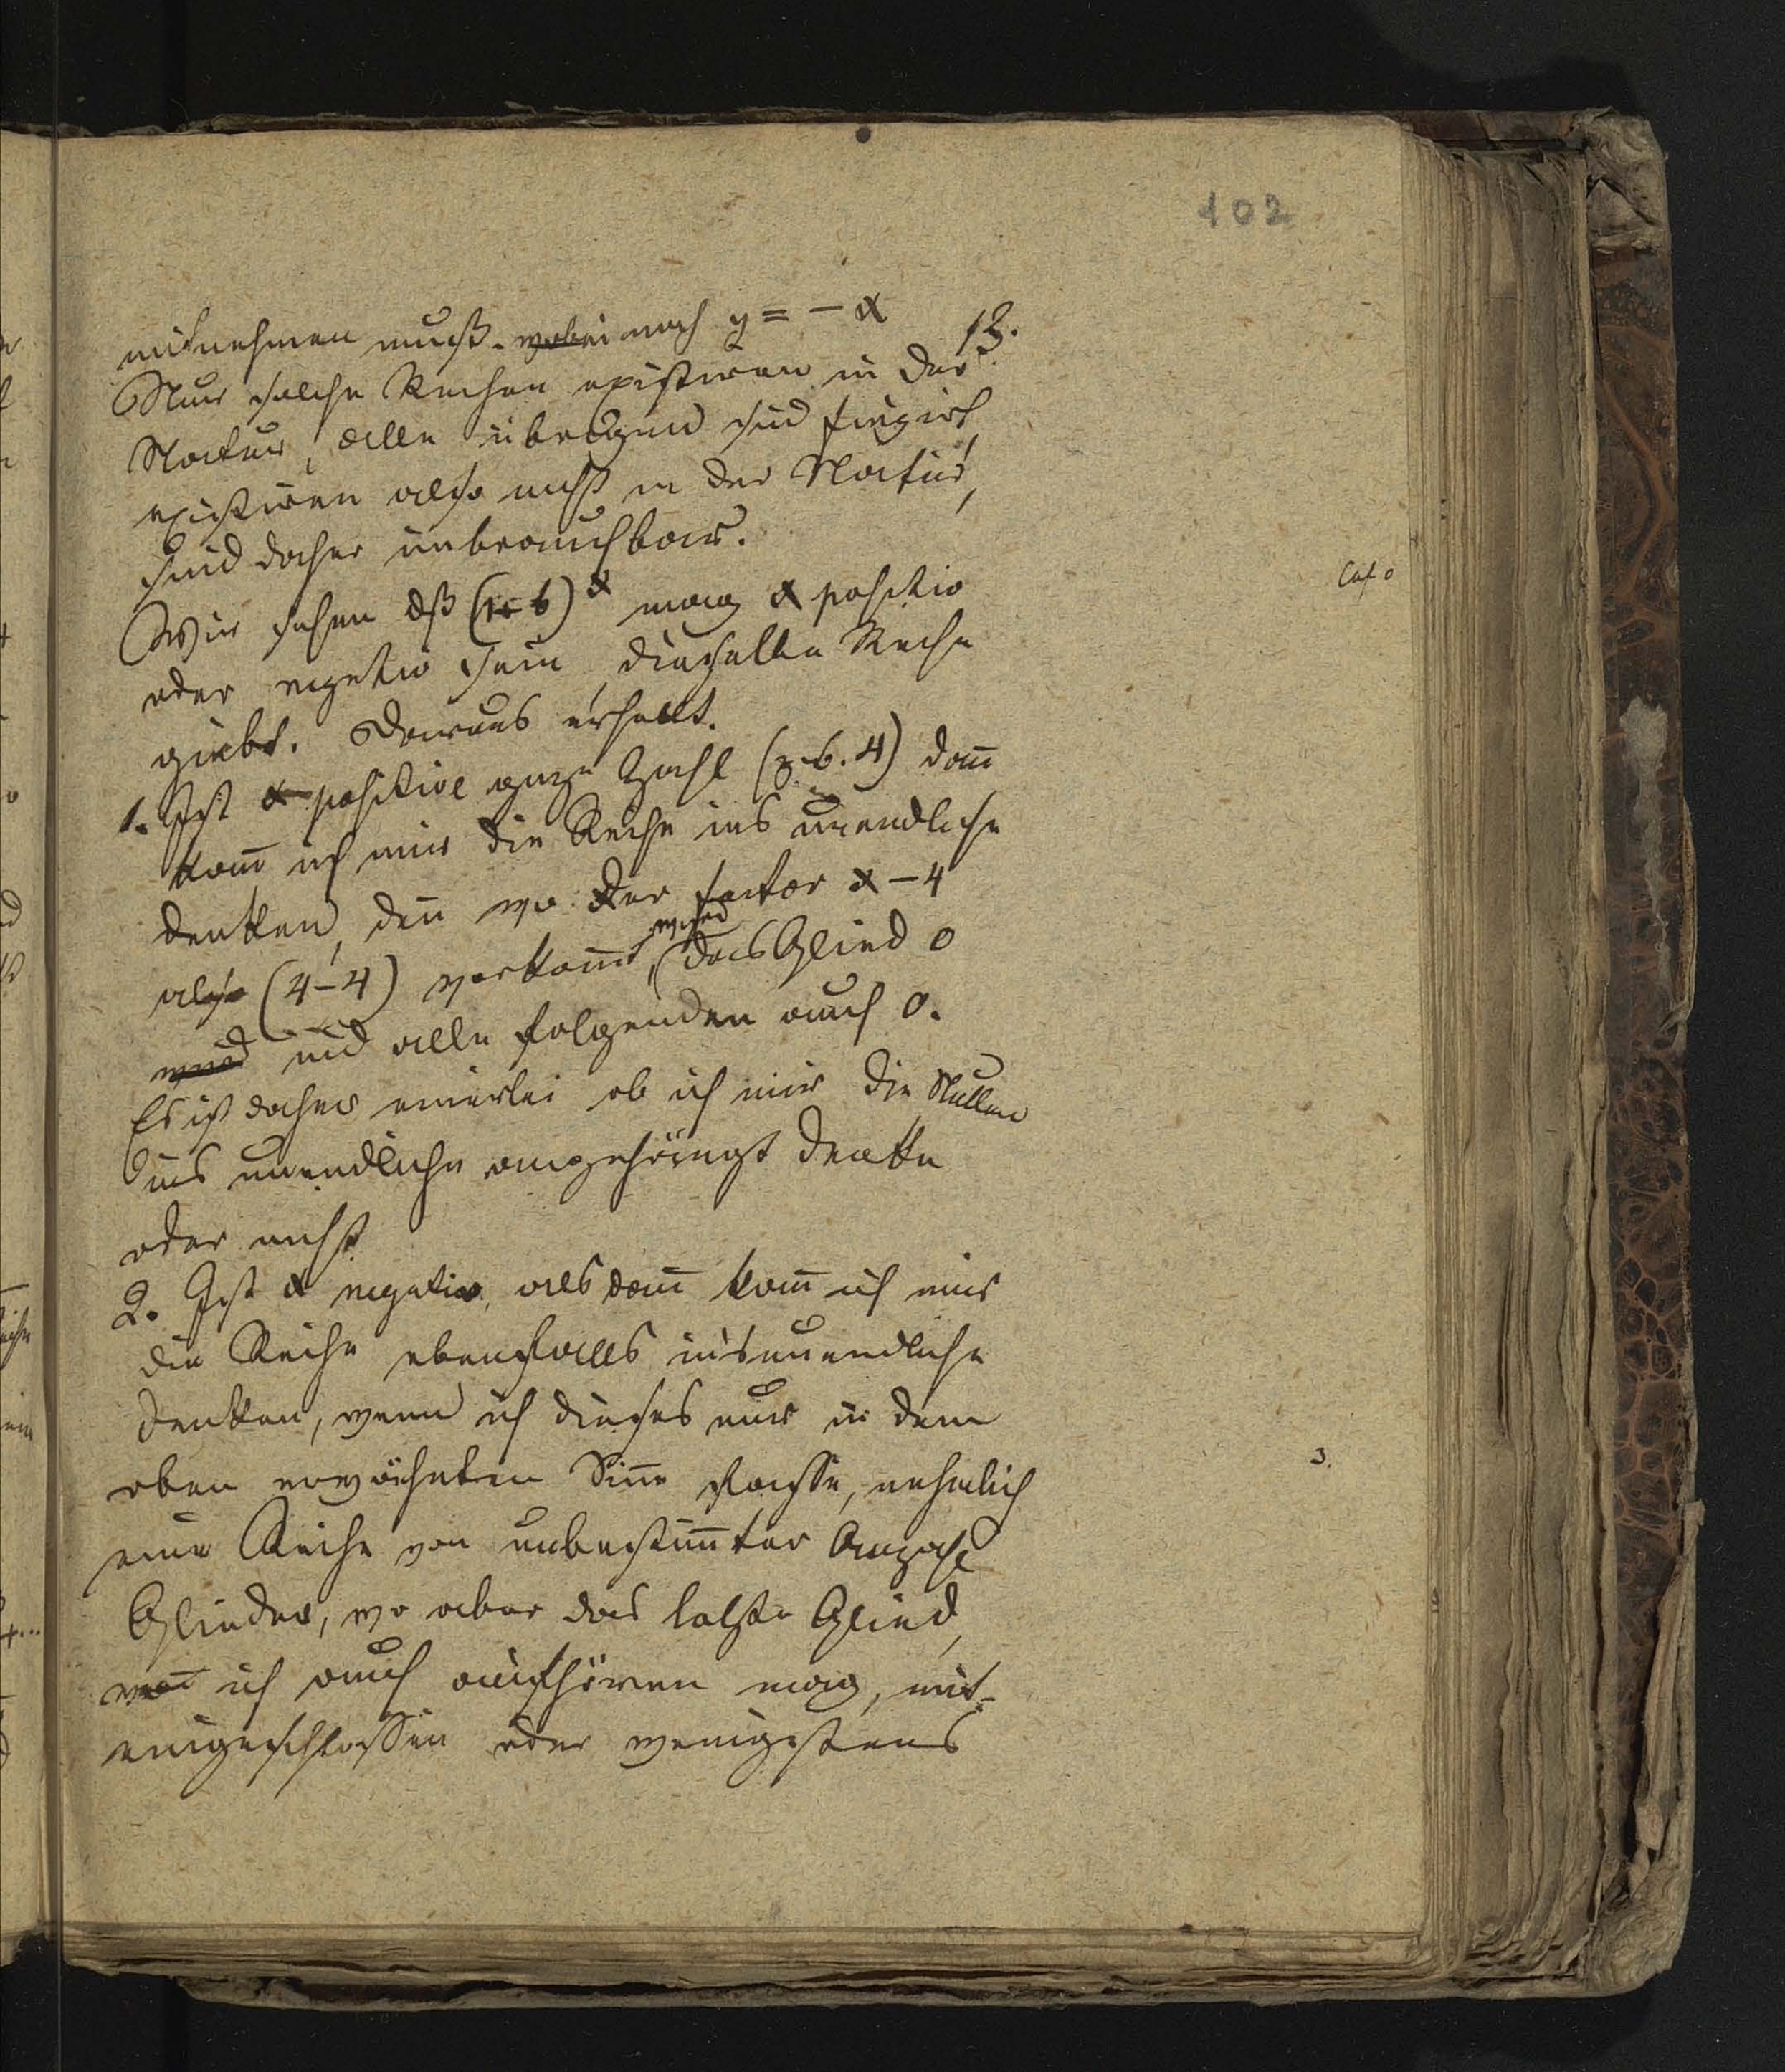 102
mitnehmen muß. wobei noch y = - α
13.
Nur solche Reihen existiren in der
Natur, alle übrigen sind fingirt,
existiren also nicht in der Natur,
sind daher unbrauchbar.
Wir sehen dß (1+b)^α mag α positiv
oder negativ sein, dieselbe Reihe
giebt. Daraus erhellt.
1. Ist α positive ganze Zahl (z.b. 4) dañ
kañ ich mir die Reihe ins unendliche
denken, deñ wo der factor α-4
also (4-4) vorkom̄t, wird das Glied 0
wird und alle folgenden auch 0.
Es ist daher einerlei ob ich mir die Nullen
ins unendliche angehängt denke
oder nicht.
2. Ist α negativ, als dañ kañ ich mir
die Reihe ebenfalls ins unendliche
denken, wenn ich dieses nur in dem
oben erwähnten Siñe fasse, nehmlich
eine Reihe von unbestim̄ter Anzahl
Glieder, wo aber das letzte Glied,
wo ich auch aufhören mag, mit-
eingeschlossen oder wenigstens
3.